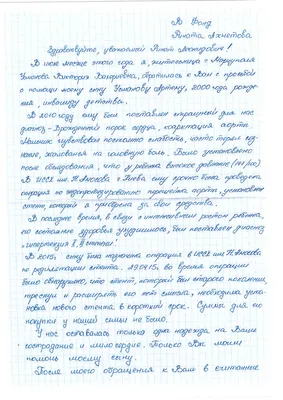 В Фонд
Рината Ахметова
Здравствуйте, уважаемый Ринат Леонидович!
В июле месяце этого года я, жительница г. Мариуполя
Виктория Богдановна, обратилась к Вам с просьбой
о помощи моему сыну Артему, 2000 года рожде-
ния, инвалиду детства.
В 2010 году ему был поставлен страшный для нас
диагноз - Врожденный порок сердца, коарктация аорты.
Мальчик чувствовал постоянно слабость, часто терял соз-
нание, жаловался на головную боль. Было установлено
после обследования, что у ребенка высокое давление
В ИССХ им. Н. Амосова г. Киева ему срочно была проведена
операция по перешейка аорты, установлен
стент, который я приобрела за свои средства.
В последнее время, в связи с интенсивным ростом ребенка,
его состояние здоровья ухудшилось, был поставлен диагноз
"гипертензия II степени".
В 2015г. сыну была назначена операция в ИССХ им. Н. Амосова
по стента. во время операции
было обнаружено, что стент, который был второго поколения,
треснул и расширить его нет смысла, необходима уста-
новка нового стента в короткий срок. Суммы для его
покупки у нашей семьи не было.
У нас оставалась только одна надежда на Ваше
сострадание и милосердие. Только Вы могли
помочь моему сыну.
После моего обращения к Вам в считанные